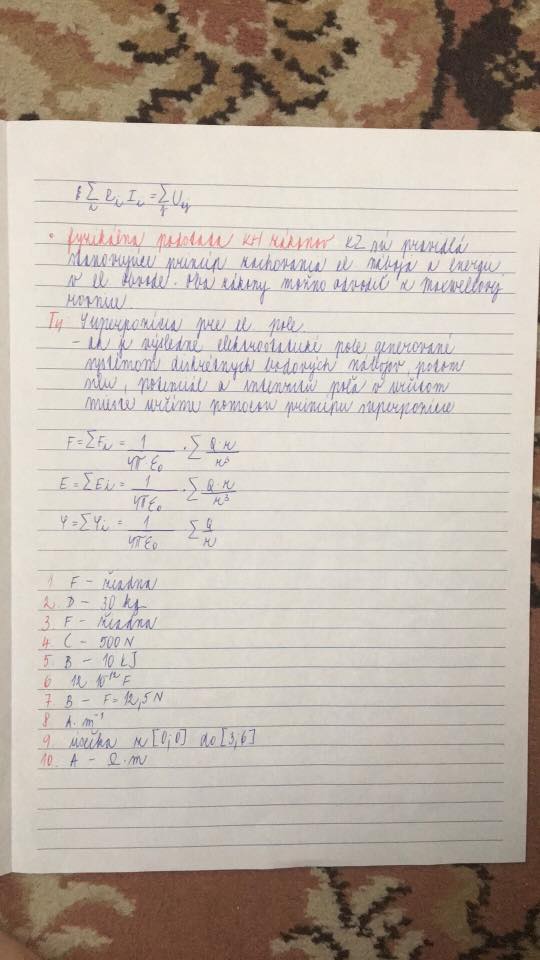 ∑ R_i I_i = ∑ U_ej
• fyzikálna podstata KH zákonov KZ sú pravidlá
stanovujúce princíp zachovania el. náboja a energie
v el. obvode. Oba zákony možno odvodiť z Maxwellovej
rovnice
T4 Superpozícia pre el. pole.
- ak je výsledné elektrostatické pole generované
systémom diskrétnych bodových nábojov, potom
silu, potenciál a intenzitu poľa v určitom
mieste určíme pomocou princípu superpozície
F = ∑F_i = 1/(4π·ε₀) · ∑ Q·r/r³
E = ∑E_i = 1/(4πε₀) · ∑ Q·r/r³
φ = ∑φ_i = 1/(4πε₀) ∑ Q/r
1. F - žiadna
2. D - 30 kg
3. F - žiadna
4. C - 500 N
5. B - 10 kJ
6 12 10⁻¹² F
7. B - F = 12,5 N
8 A. m⁻¹
9. úsečka z [0,0] do [3,6]
10. A - Ω.m